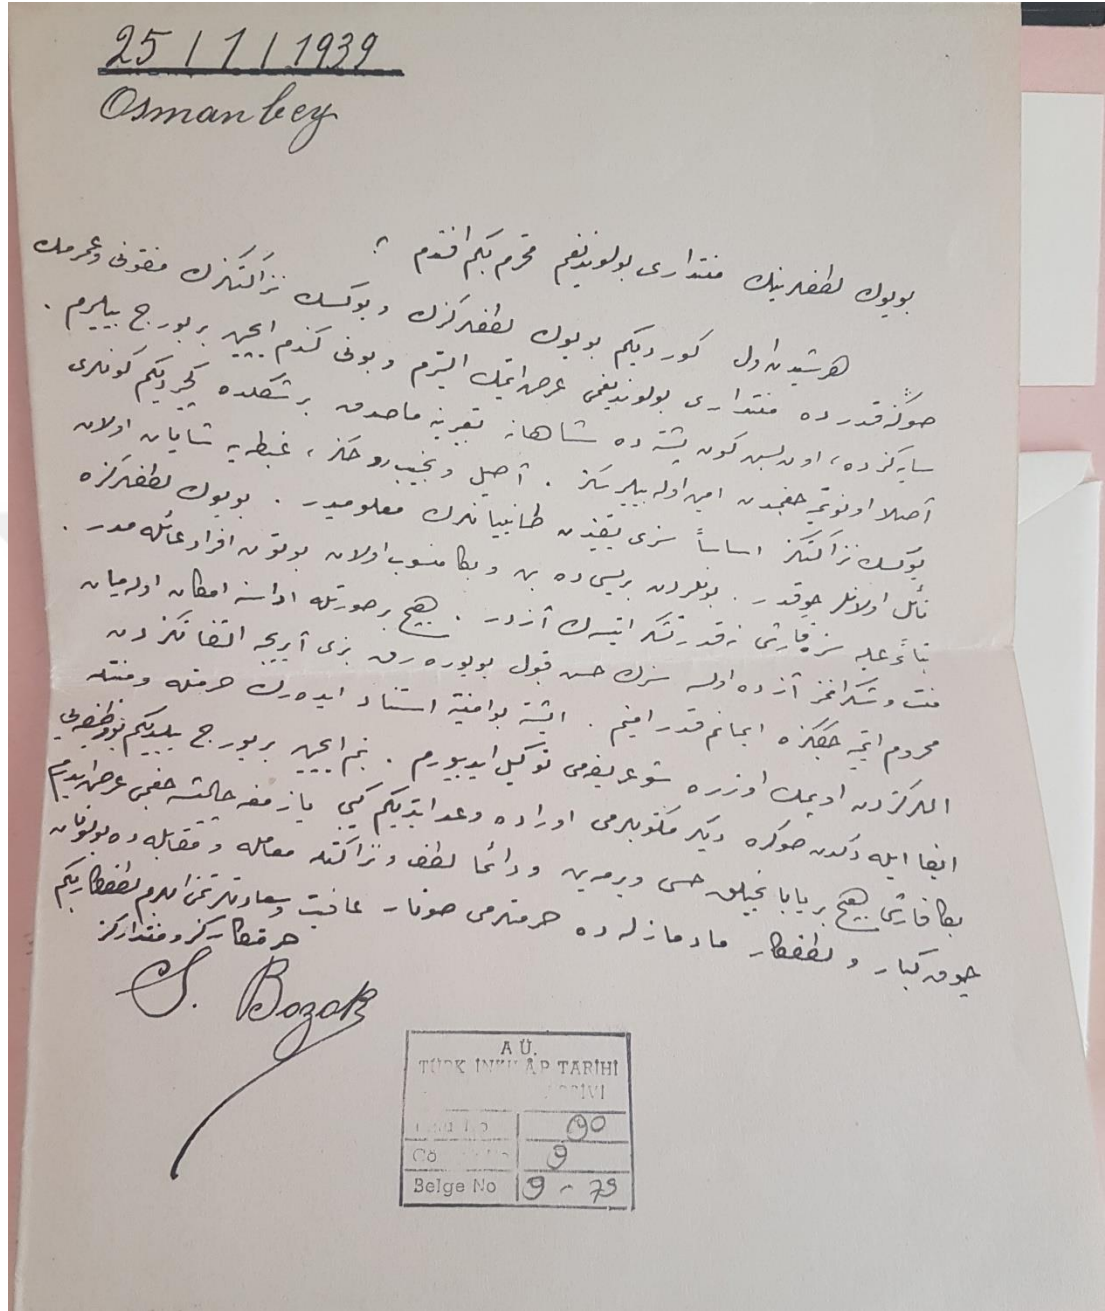 25 / 1 / 1939
Osmanbey
بويوك لطفلرينك منتدارى بولونديغم محترم بكم افندم ؟
هر شيدن اول كورديكم بويوك لطفلركزك و يوكسك نزاكتكزك مفتونى و عمرمك
صوكنه قدر ده منتدارى بولونديغمى عرض ايتمك ايسترم و بونى كندم ايچون بر بورج بيليرم .
سايه كزده ، اون بش كون پشته ده شاهانه تعبيرينه ماصدق بر شكلده كچرديكم كونلرى
اصلا اونوتميه جغمدن امين اوله بيليرسكز . اصيل و نجيب روحكز ، غبطه يه شايان اولان
يوكسك نزاكتكز اساساً سزى يقيندن طانييانلرك معلوميدر . بويوك لطفلركزه
نائل اولانلر چوقدر . بونلردن بريسى ده بن و بكا منسوب اولان بوتون افراد عائله مدر .
بناءً عليه سزه قارشى نه قدر تشكر ايتسه ك آزدر . هيچ بر صورتله اداسنه امكان اولميان
منت و شكرانمز آز ده اولسه سزك حسن قبول بويوره رق بزى آيريجه التفاتكزدن
محروم ايتميه جككزه ايمانم قدر امينم . ايشته بو امنيته استناد ايده رك حرمتله و منتله
اللركزدن اوپمك اوزره شو عريضه مى توكيل ايدييورم . بنم ايچون بر بورج بيلديكم بو وظيفه يى
ايفا ايله دكدن صوكره ديكر مكتوبلرمى اوراده وعد ايتديكم كبى يازمغه چاليشه جغمى عرض ايدرم
بكا قارشى هيچ بر يابانجيلق حسى ويرمه ين و دائما لطف و نزاكتله معامله و مقابله ده بولونان
چوق كبار و لطفكار مادمازله ده حرمتلرمى صونار عافيت و سعادتلر تمنى ايدرم لطفكار بكم
حرمتكاركز و منتداركز
S. Bozok
A Ü.
TÜRK İNKILÂP TARİHİ
90
9
Belge No 9 - 79